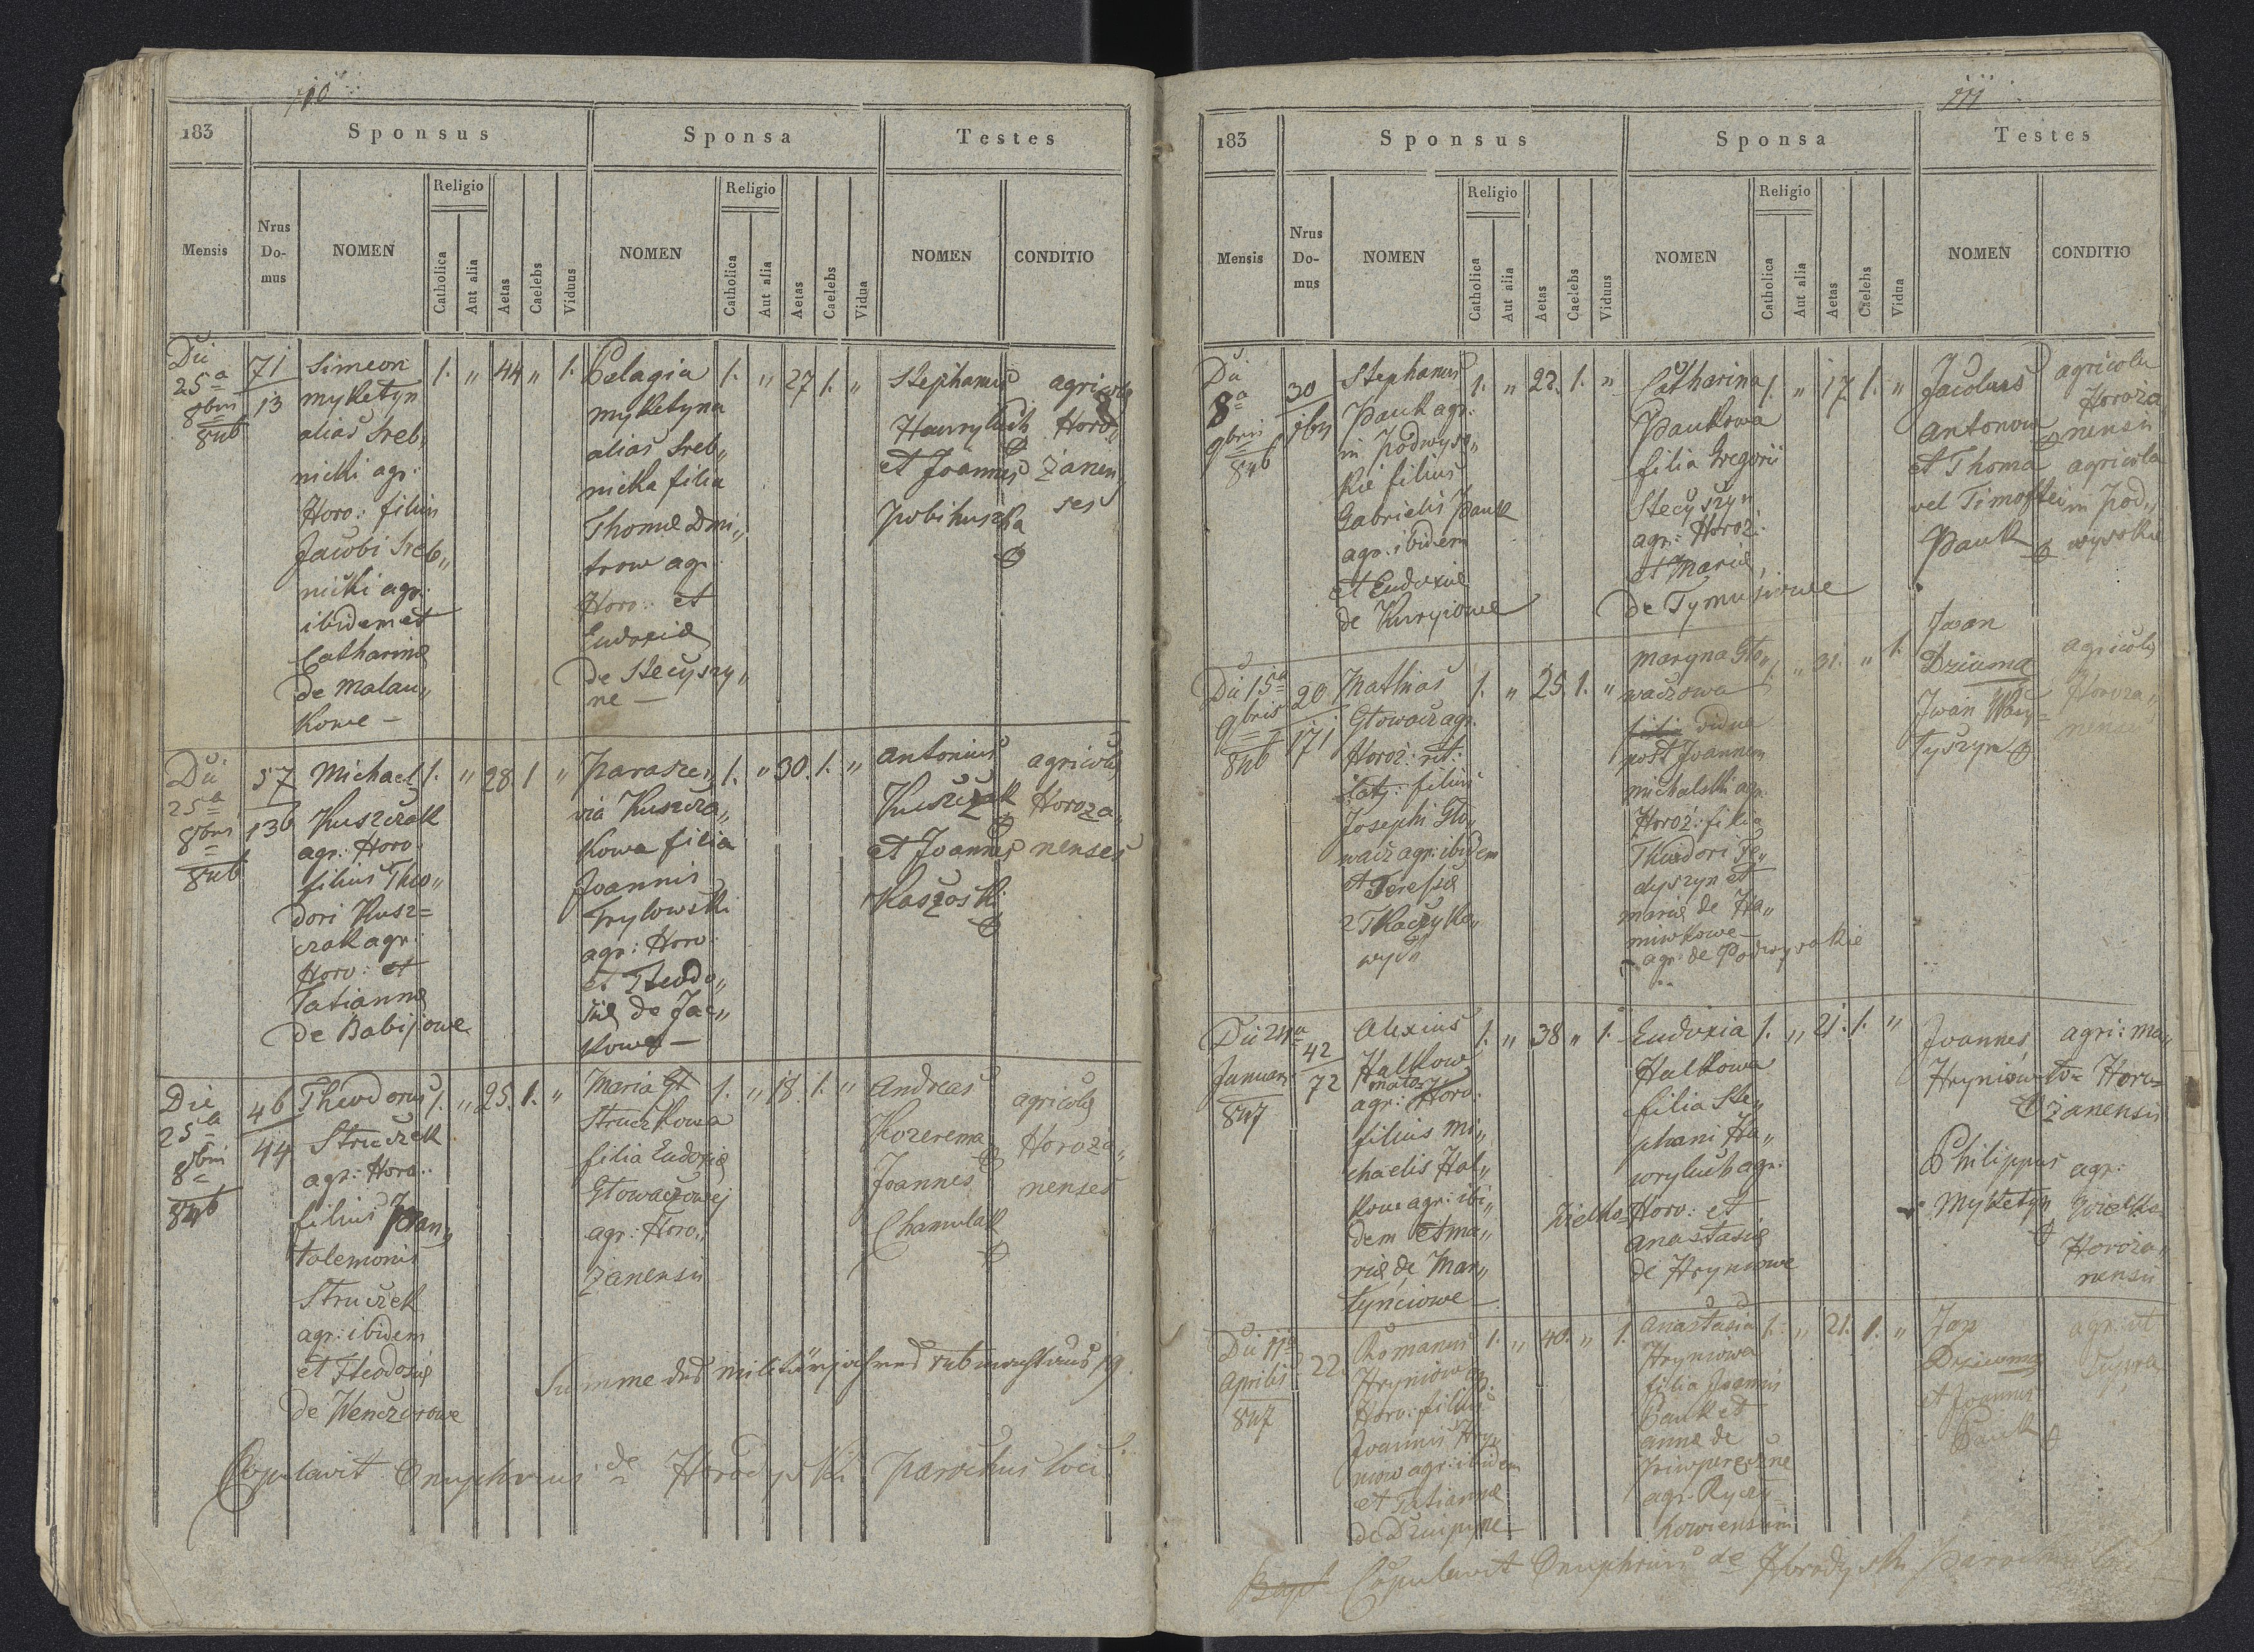 110
183
Sponsus
Sponsa
Testes
Mensis
Nrus Domus
NOMEN
Religio
Catholica
Aut alia
Aetas
Caelebs
Viduus
NOMEN
Religio
Catholica
Aut alia
Aetas
Caelebs
Vidua
NOMEN
CONDITIO
Die
25a
8bris
846
71
13
Simeon
Myketyn
alias Sreb„
nicki agr:
Horo: filius
Jacobi Sreb„
nicki agr:
ibidem et
Catharinæ
de Malau„
kowe –
1. „ 44 „ 1.
Pelagia
Myketyna
alias Sreb„
nicka filia
Thomæ Dmi„
trow agr
Horo: et
Eudoxiæ
de Stecyszy„
ne –
1. „ 27 1. „
Stephanus
Hawryluch
et Joannes
Pobihuszka
agricolæ
Horo„
żanen„
ses
Die
25a
8bris
846
57
136
Michael
Kuszczak
agr: Horo:
filius Theo„
dori Kusz=
czak agr:
Horo: et
Tatiannæ
de Babijowe
1. „ 28 1 „
Parasze„
via Kuszcza„
kowa filia
Joannis
Trylowski
agr: Horo:
et Theodo„
siæ de Jac„
kowe –
1. „ 30. 1. „
Antonius
Kuszczak
et Joannes
Kaszoski
agricolæ
Horoża„
nenses
Die
25a
8bris
846
46
44
Theodorus
Struczek
agr: Horo:
filius Pan„
talemonis
Struczek
agr: ibidem
et Theodosiæ
de Wenczurowe
1. „ 25. 1. „
Maria
Struczkowa
filia Eudoxiæ
Głowaczowej
agr: Horo„
żanensis
1. „ 18. 1. „
Andreas
Kozerema
Joannes
Chamulak
agricolæ
Horoża„
nenses
Summe des Militärjahres 846 macht aus 19.
Copulavit Onuphrius de Horodyski parochus loci.
111
183
Sponsus
Sponsa
Testes
Mensis
Nrus Domus
NOMEN
Religio
Catholica
Aut alia
Aetas
Caelebs
Viduus
NOMEN
Religio
Catholica
Aut alia
Aetas
Caelebs
Vidua
NOMEN
CONDITIO
Die
8a
9bris
846
30
Stephanus
Pauk agr:
in Podwyso„
kie filius
Gabrielis Pauk
agr: ibidem
et Eudoxiæ
de Kuryiowe
1. „ 22. 1. „
Catharina
Paukowa
filia Gregorii
Stecyszyn
agr: Horoż:
et Mariæ,
de Tymusiowe
1. „ 17 1. „
Jacobus
Antonow
et Thoma
vel Timoftei
Pauk
agricola
Horoża
nensis
agricola
in Pod„
wysokie
Die 15a
9bris
846
20
171
Mathias
Głowacz agr.
Horoż: rit:
lat: filius
Josephi Gło„
wacz agr: ibidem
et Teressiæ
z Tkaczyko„
wych
1. „ 25. 1. „
Maryna Gło„
waczowa
vidua
post Joannem
Michalski agr.
Horoż: filia
Theodori Fe„
dyszyn et
Mariæ de Ha„
miwkowe –
agr: de Podwysokie
1. „ 31. „ 1.
Iwan
Dziuma
Iwan Wasy=
tyszyn
agricolæ
Horoża„
nenses
Die 24a
Januarii
847
42
72
Alexius
Halkow
agr: Horo:
filius Mi„
chaelis Hal„
kow agr: ibi„
dem et Ma„
riæ de Mar„
tynciowe –
1. „ 38 „ 1.
Eudoxia
Halkowa
filia Ste„
phani Ha„
wryluch agr:
Horo: et
Anastasiæ
de Hryniowe
1. „ 21. 1. „
Joannes
Hryniow
Philippus
Myketyn
agri: Ma„
ło= Horo=
żanensis
agr:
Wielko
Horoża„
nensis
Die 11a
Aprilis
847
22.
Romanus
Hryniow ag:
Horo: filius
Joannis Hry„
niow agr: ibidem
et Tatiannæ
1. „ 40. „ 1.
Anastasia
Hryniowa
filia Joannis
Pauk et
Annæ de
agr: Ryczy=
kowiensium
1. „ 21. 1. „
Jan
Dziuma
et Joannes
Pauk
agr: et
Copulavit Onuphrius de Horodyski parochus loci